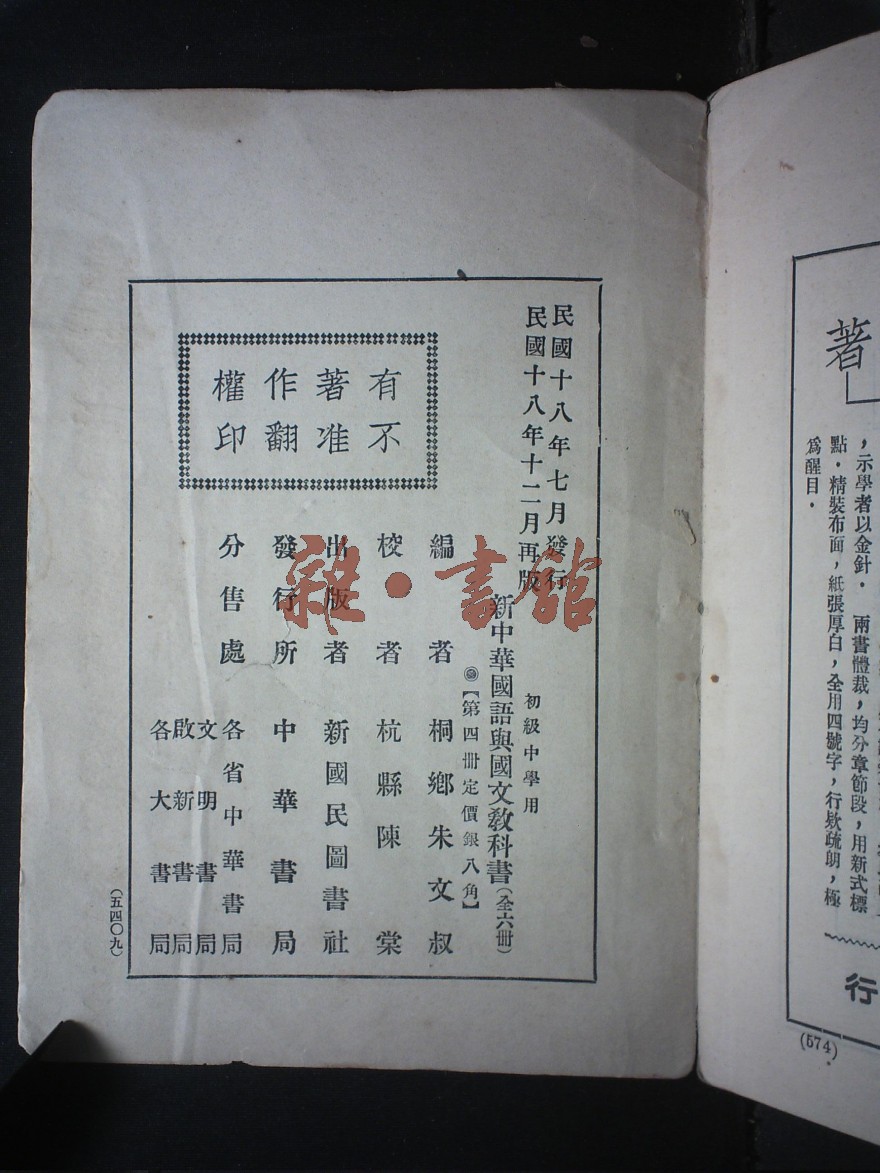 著
，示學者以金針． 兩書體裁，均分章節段，用新式標
點．精裝布面，紙張厚白，全用四號字，行款疏朗，極
爲醒目．
行
(574)
民國十八年七月發行
民國十八年十二月再版
初級中學用
新中華國語與國文敎科書(全六冊)
【第四冊定價銀八角】
有不
著准
作翻
權印
編者 桐鄉朱文叔
校者 杭縣陳棠
出版者 新國民圖書社
發行所 中華書局
分售處 各省中華書局
文明書局
啟新書局
各大書局
(五四〇九)
雜·書館